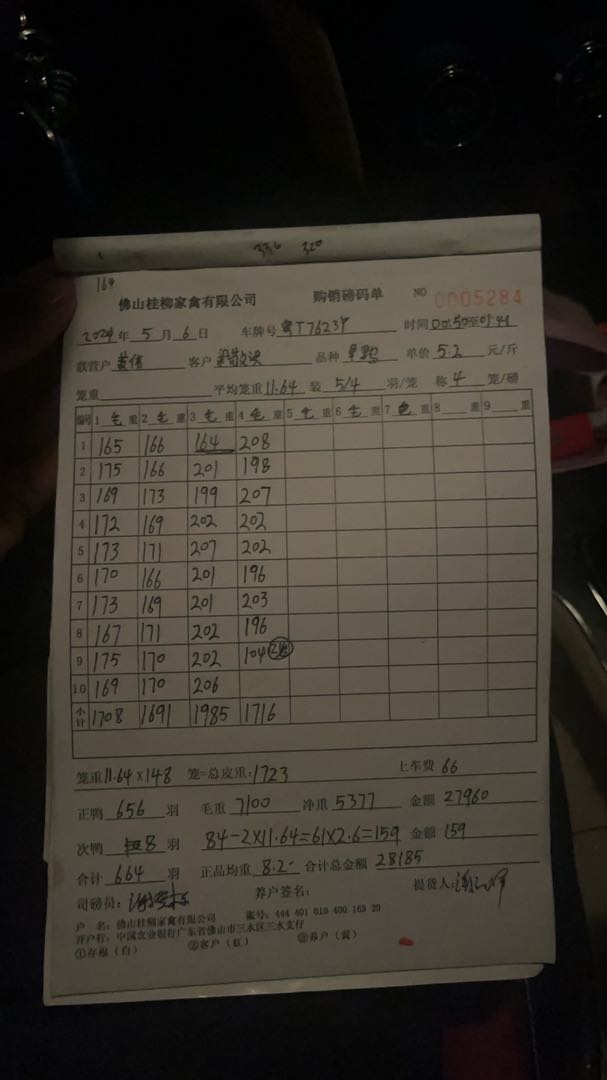 336 320
164
佛山桂柳家禽有限公司 购销磅码单 NO 0005284
2024年5月6日 车牌号 粤T7623P 时间00:50至01:41
联营户 黄伟 客户 品种 单价5.2元/斤
笼重 平均笼重11.64 装5/4羽/笼 称4笼/磅
编号 1毛重 2毛重 3毛重 4毛重 5毛重 6毛重 7毛重 8重 9重
1 165 166 164 208
2 175 166 201 198
3 169 173 199 207
4 172 169 202 202
5 173 171 207 202
6 170 166 201 196
7 173 169 201 203
8 167 171 202 196
9 175 170 202 104
10 169 170 206
小计 1708 1691 1985 1716
笼重11.64×148笼=总皮重:1723 上车费66
正鸭656羽 毛重7100 净重5377 金额27960
次鸭 8羽 84-2×11.64=61×2.6=159 金额159
合计664羽 正品均重8.2 合计总金额28185
司磅员: 养户签名: 提货人:
户 名:佛山桂柳家禽有限公司 账号:444 401 010 400 169 20
开户行:中国农业银行广东省佛山市三水区三水支行
①存根(白) ②客户(红) ③养户(黄)